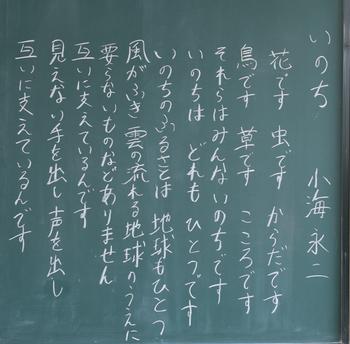 いのち 小海永二
花です 虫です からだです
鳥です 草です こころです
それらはみんないのちです
いのちは どれも ひとつです
いのちのふるさとは 地球もひとつ
風がふき 雲の流れる地球のうえに
要らないものなどありません
互いに支えているんです
見えない手を出し 声を出し
互いに支えているんです